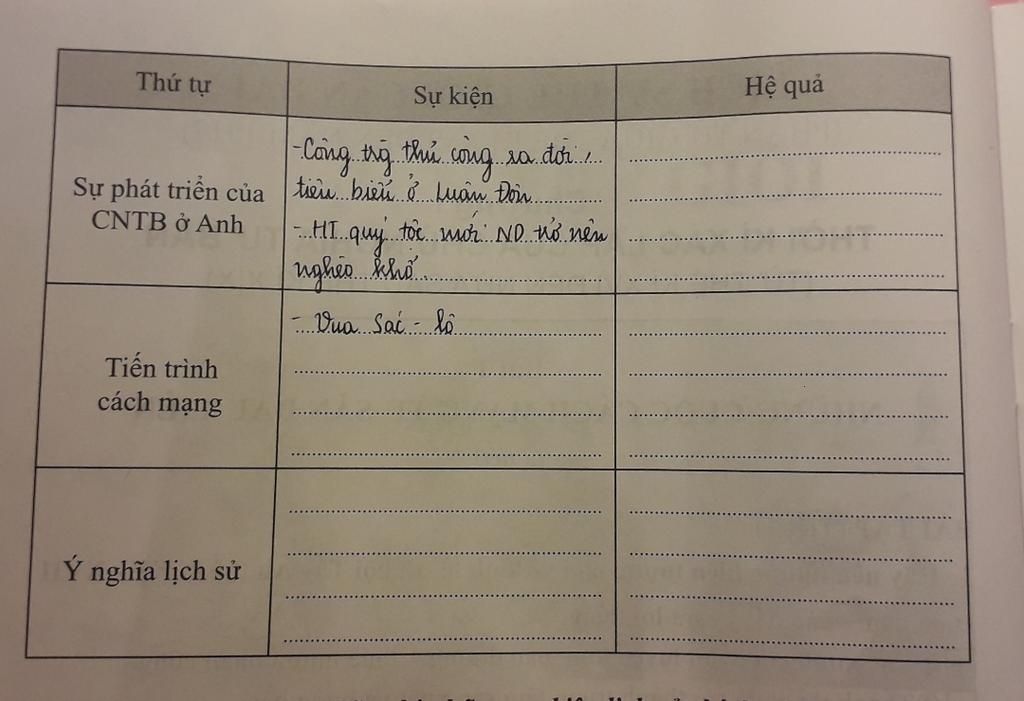 Thứ tự
Sự kiện
Hệ quả
Sự phát triển của
CNTB ở Anh
- Công trg thủ công ra đời,
tiêu biểu ở Luân Đôn
- HT quý tộc mới ND trở nên
nghèo khổ.
Tiến trình
cách mạng
- Vua Sác - lơ
Ý nghĩa lịch sử